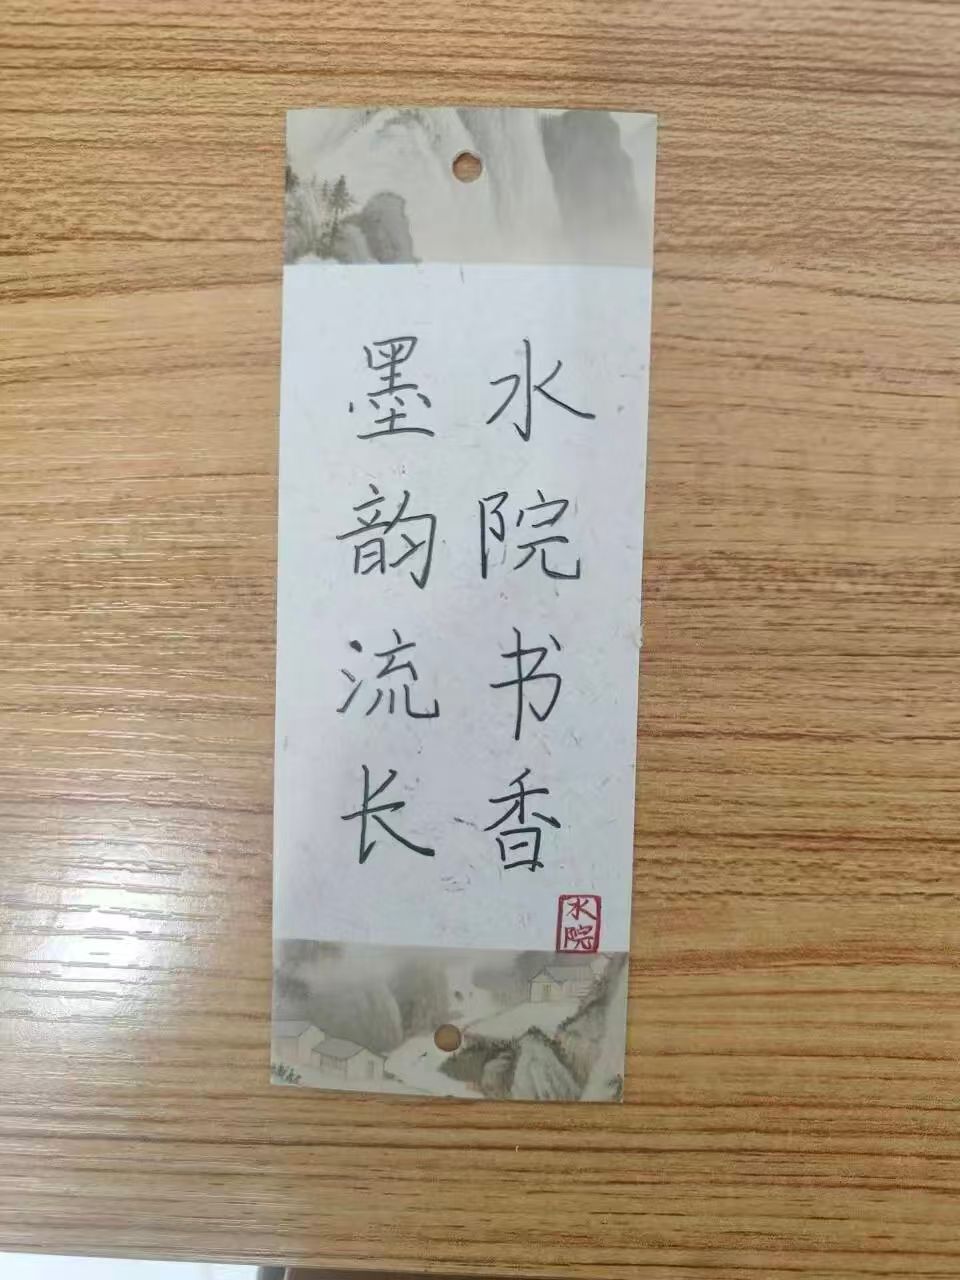 水院书香
墨韵流长
水院